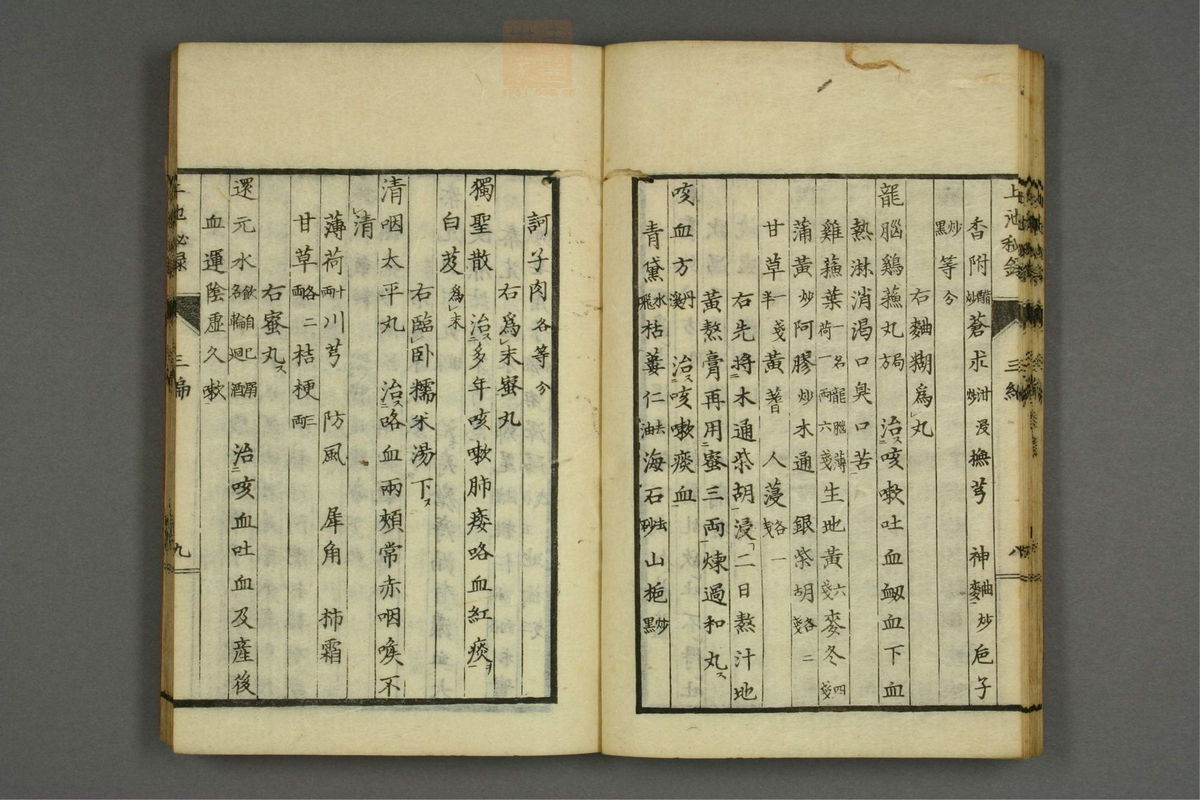 香附醋炒蒼朮泔浸撫芎　神麯炒巵子
炒黑等分
右麯糊爲丸
龍腦鷄蘓丸局方　治咳嗽吐血衂血下血
熱淋消渴口臭口苦
雞蘓葉一名龍腦薄荷一兩六錢生地黃六錢麥冬四錢
蒲黃炒阿膠炒木通　銀柴胡各二錢
甘草一錢半黃耆　人薓各一錢
右先將木通柴胡浸二日熬汁地
黃熬膏再用蜜三兩煉過和丸
咳血方丹溪　治咳嗽痰血
青黛水飛栝蔞仁去油海石去砂山梔炒黑
上池秘錄
三編
八
訶子肉各等分
右爲末蜜丸
獨聖散　治多年咳嗽肺痿咯血紅痰
白芨爲末
右臨卧糯米湯下
清咽太平丸　治咯血兩頰常赤咽喉不
清
薄荷十兩川芎　防風　犀角　柿霜
甘草各二兩桔梗三兩
右蜜丸
還元水飲自己溺名輪廻酒　治咳血吐血及產後
血運陰虛久嗽
三編
九